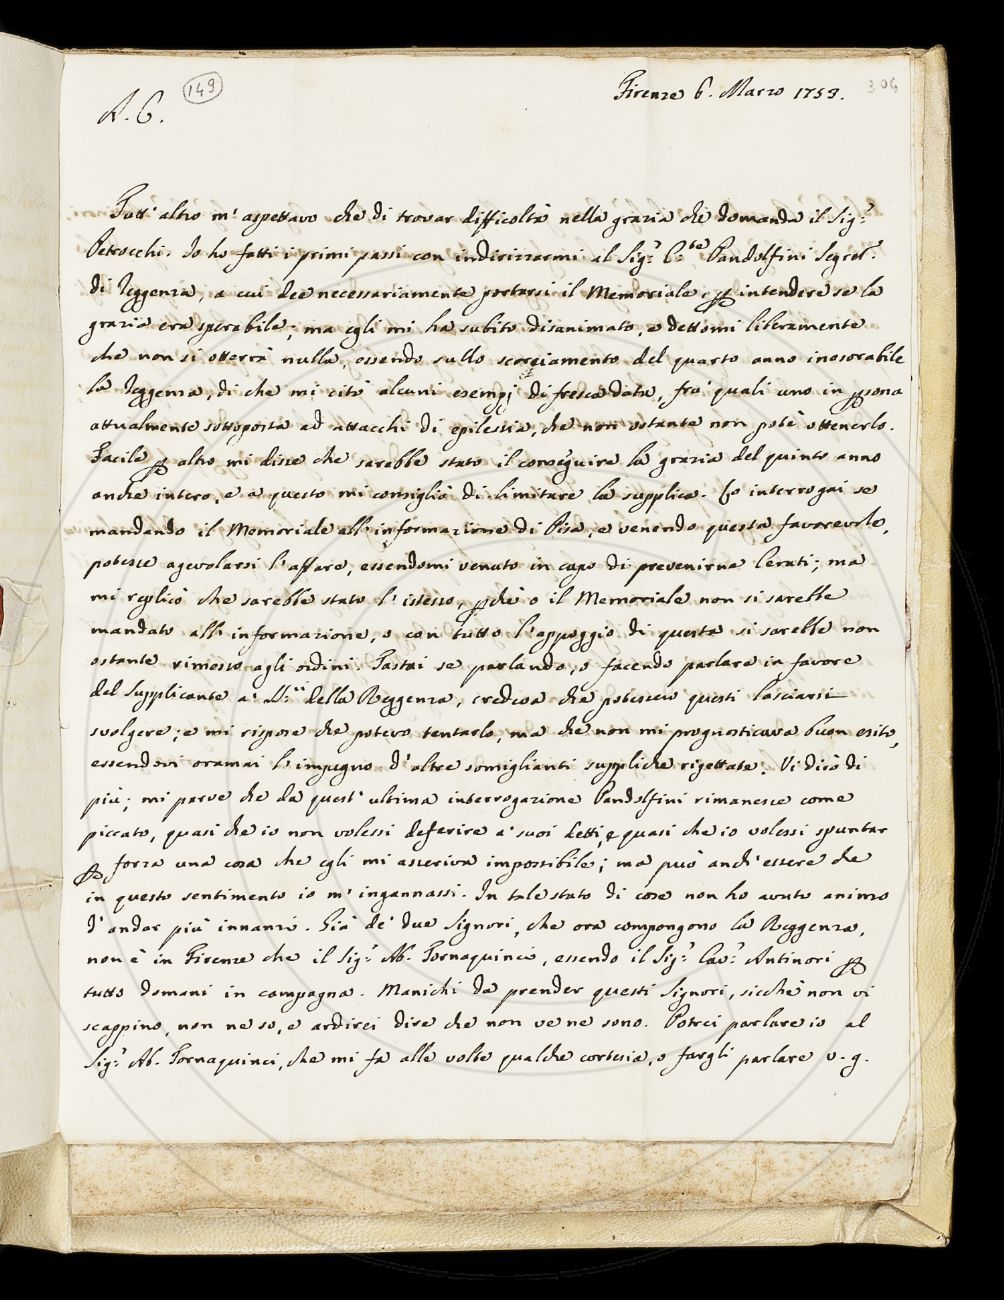 149
Firenze 6. Marzo 1753.
304
A. C.
Tutt' altro m' aspettavo che di trovar difficoltà nella grazia che domanda il Sig.r
Petrocchi. Io ho fatti i primi passi con indirizzarmi al Sig.r C.te Pandolfini Segret.
di Reggenza, a cui dee necessariamente portarsi il Memoriale, p intendere se la
grazia era sperabile; ma egli mi ha subito disanimato, e dettomi liberamente
che non si otterrà nulla, essendo sullo scorciamento del quarto anno inesorabile
la Reggenza, di che mi citò alcuni esempj di fresca data, fra' quali uno in psona
attualmente sottoposta ad attacchi di epilessia, che non ostante non potè ottenerlo.
Facile p altro mi disse che sarebbe stato il conseguire la grazia del quinto anno
anche intero, e a questo mi consigliò di limitare la supplica. Io interrogai se
mandando il Memoriale all' informazione di Pisa, e venendo questa favorevole,
potesse agevolarsi l' affare, essendomi venuto in capo di prevenirne Cerati; ma
mi replicò che sarebbe stato l' istesso, pchè o il Memoriale non si sarebbe
mandato all' informazione, o con tutto l' appoggio di questa si sarebbe non
ostante rimesso agli ordini. Tastai se parlando, o facendo parlare in favore
del Supplicante a' SS.ri della Reggenza, credeva che potessero questi lasciarsi
svolgere; e mi rispose che potevo tentarlo, ma che non mi prognosticava buon esito,
essendovi oramai l' impegno d' altre somiglianti suppliche rigettate. Vi dirò di
più; mi parve che da quest' ultima interrogazione Pandolfini rimanesse come
piccato, quasi che io non volessi deferire a' suoi detti, e quasi che io volessi spuntar
p forza una cosa che egli mi asseriva impossibile; ma può anch' essere che
in questo sentimento io m' ingannassi. In tale stato di cose non ho avuto animo
d' andar più innanzi. Già de' due Signori, che ora compongono la Reggenza,
non è in Firenze che il Sig.r Ab. Tornaquinci, essendo il Sig.r Cav.r Antinori p
tutto domani in campagna. Manichi da prender questi Signori, sicchè non vi
scappino, non ne so, e ardirei dire che non ve ne sono. Potrei parlare io al
Sig.r Ab. Tornaquinci, che mi fa alle volte qualche cortesia, o fargli parlare v. g.